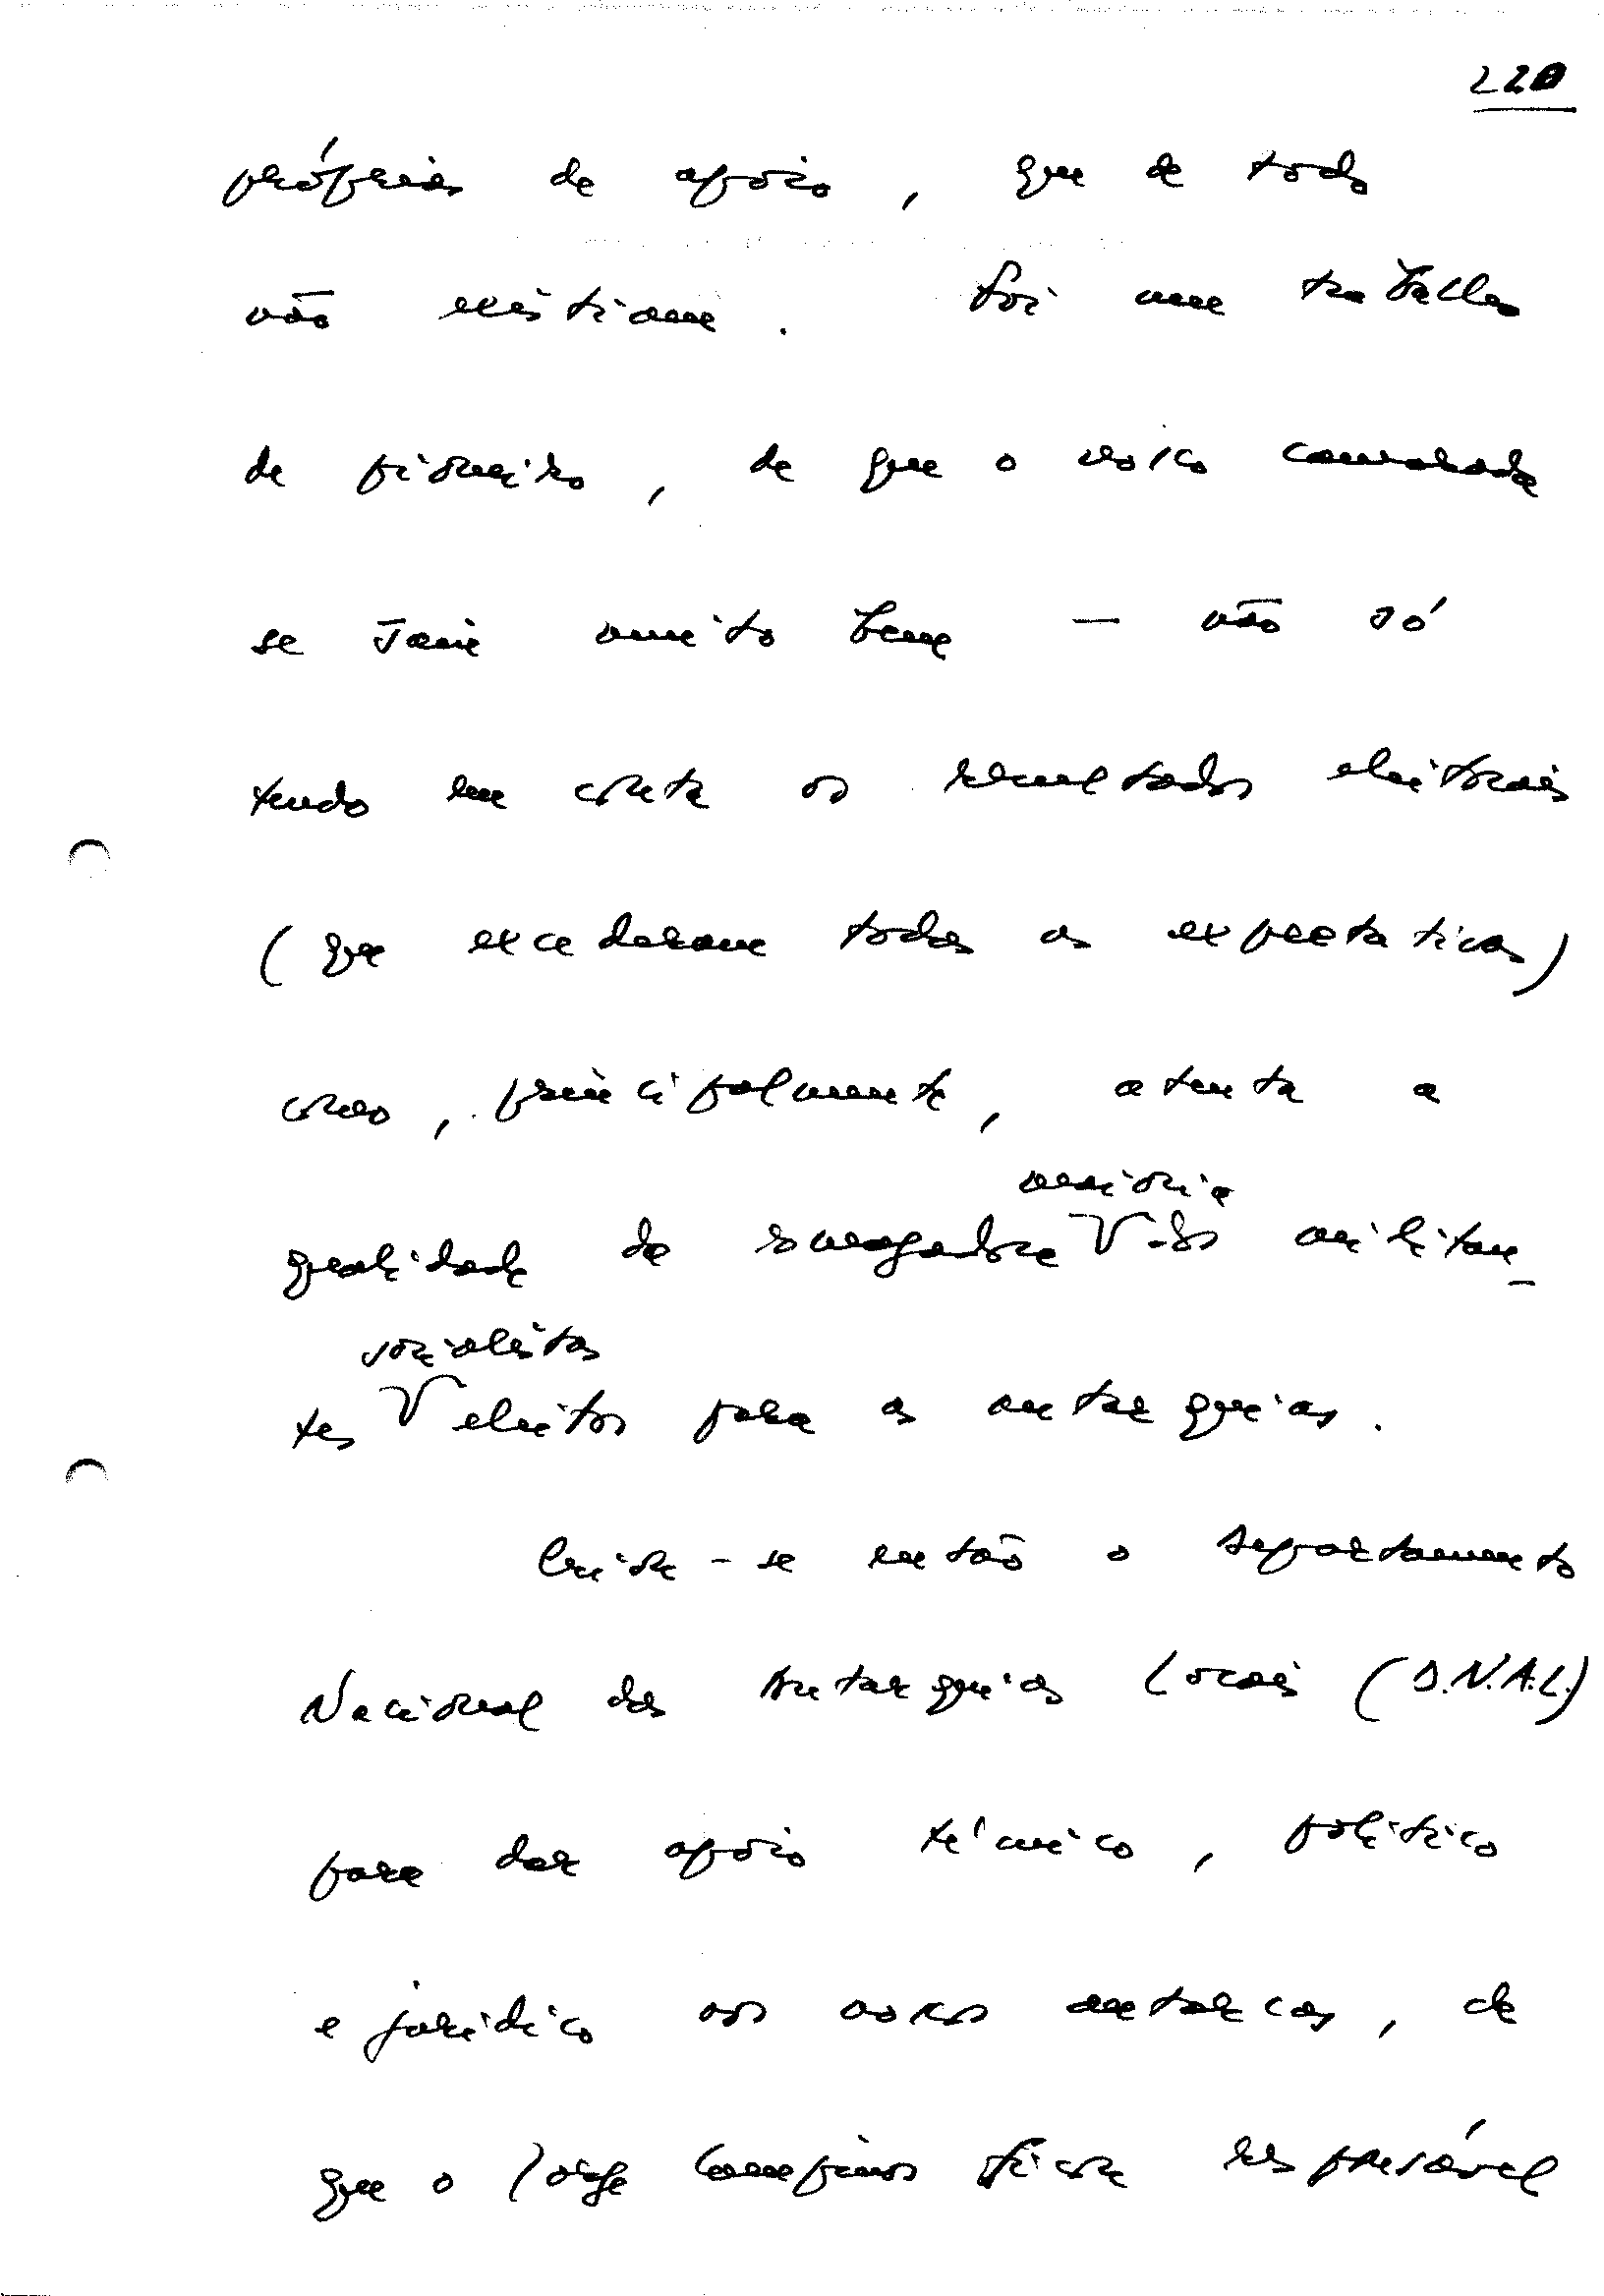 220
próprias de apoio, que de todo
não existiam. Foi um trabalho
de pioneiro, de que o nosso camarada
se saiu muito bem - não só
tendo em conta os resultados eleitorais
(que excederam todas as expectativas)
como, principalmente, atenta a
maioria
qualidade da esmagadora V dos militan-
socialistas
tes V eleitos para as autarquias.
Criou-se então o Departamento
Nacional das Autarquias Locais (D.N.A.L.)
para dar apoio técnico, político
e jurídico aos nossos autarcas, de
que o Jorge Campinos ficou responsável